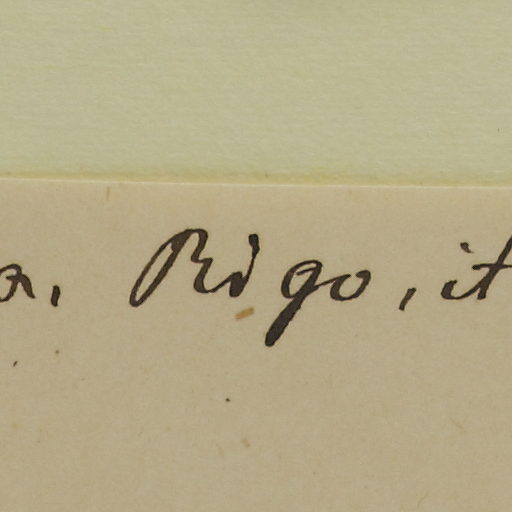 Rigo, it